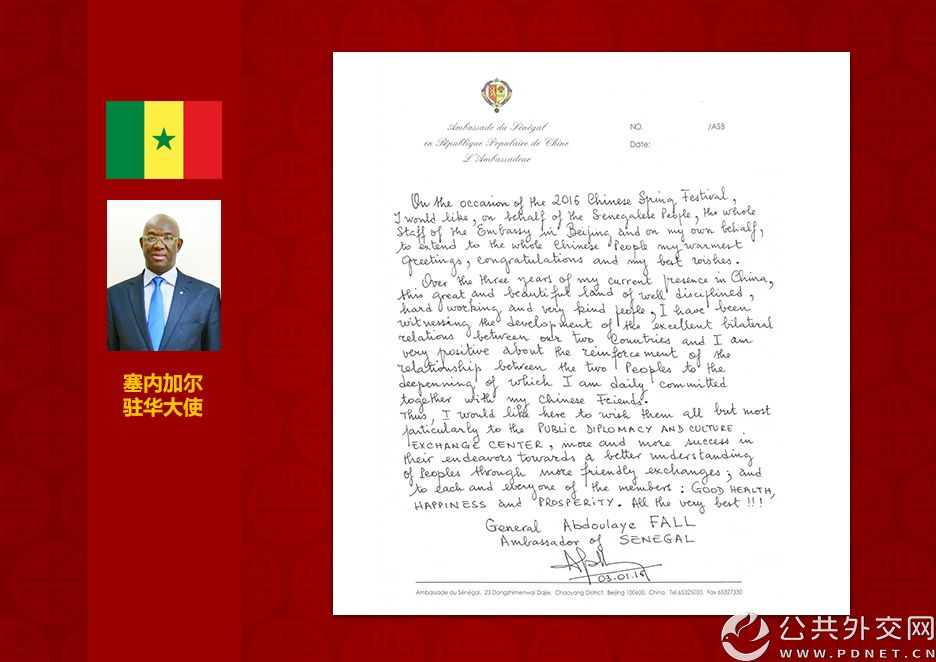 塞内加尔
驻华大使
Ambassade du Sénégal
en République Populaire de Chine
L'Ambassadeur
NO. /ASB
Date:
On the occasion of the 2016 Chinese Spring Festival,
I would like, on behalf of the Senegalese People, the whole
Staff of the Embassy in Beijing and on my own behalf,
to extend to the whole Chinese People my warmest
Greetings, congratulations and my best wishes.
Over the three years of my current presence in China,
this great and beautiful land of well disciplined,
hard working and very kind people, I have been
witnessing the development of the excellent bilateral
relations between our two Countries and I am
very positive about the reinforcement of the
relationship between the two Peoples to the
deepenning of which I am daily committed
together with my Chinese Friends.
Thus, I would like here to wish them all but most
particularly to the PUBLIC DIPLOMACY AND CULTURE
EXCHANGE CENTER, more and more success in
their endeavors towards a better understanding
of Peoples through more friendly exchanges; and
to each and everyone of the members: GOOD HEALTH,
HAPPINESS and PROSPERITY. All the very best !!!
General Abdoulaye FALL
Ambassador of SENEGAL
03.01.16
Ambassade du Sénégal, 23 Dongzhimenwai Dajie, Chaoyang District, Beijing 100600, China, Tel.65325035, Fax 65327330
公共外交网
WWW.PDNET.CN